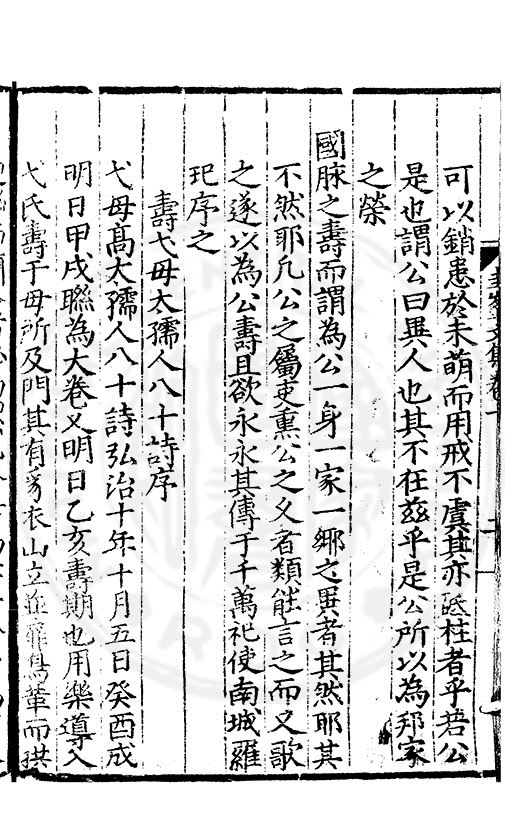 可以銷患於未萌而用戒不虞其亦砥柱者乎若公
是也謂公曰異人也其不在茲乎是公所以為邦家
之榮
國脉之壽而謂為公一身一家一鄉之異者其然耶其
不然耶凡公之屬吏熏公之久者類能言之而又歌
之遂以為公壽且欲永永其傳于千萬祀使南城羅
玘序之
壽弋母太孺人八十詩序
弋母高太孺人八十詩弘治十年十月五日癸酉成
明日甲戌聮為大卷又明日乙亥壽期也用樂導入
弋氏壽于母所及門其有豸衣山立 鳥 而珙